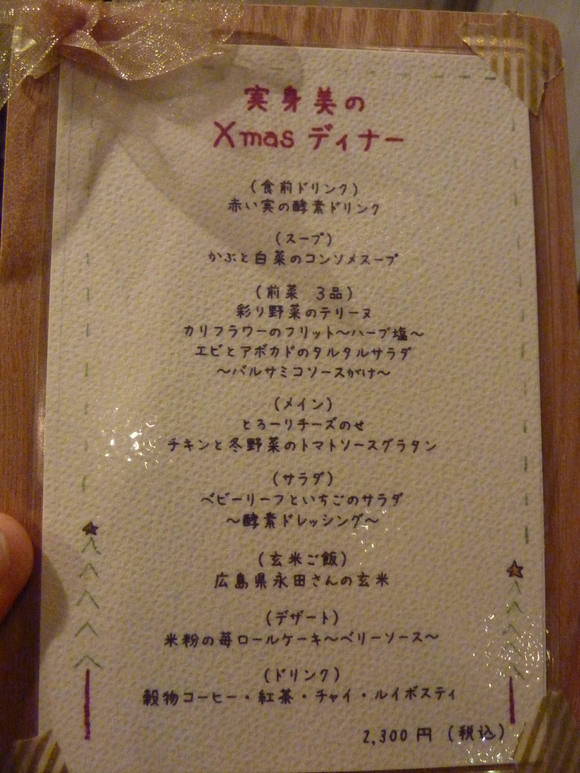 実身美の
Xmas ディナー
(食前ドリンク)
赤い実の酵素ドリンク
(スープ)
かぶと白菜のコンソメスープ
(前菜 3品)
彩り野菜のテリーヌ
カリフラワーのフリット〜ハーブ塩〜
エビとアボカドのタルタルサラダ
〜バルサミコソースがけ〜
(メイン)
とろーりチーズのせ
チキンと冬野菜のトマトソースグラタン
(サラダ)
ベビーリーフといちごのサラダ
〜酵素ドレッシング〜
(玄米ご飯)
広島県永田さんの玄米
(デザート)
米粉の苺ロールケーキ〜ベリーソース〜
(ドリンク)
穀物コーヒー・紅茶・チャイ・ルイボスティ
2,300円(税込)